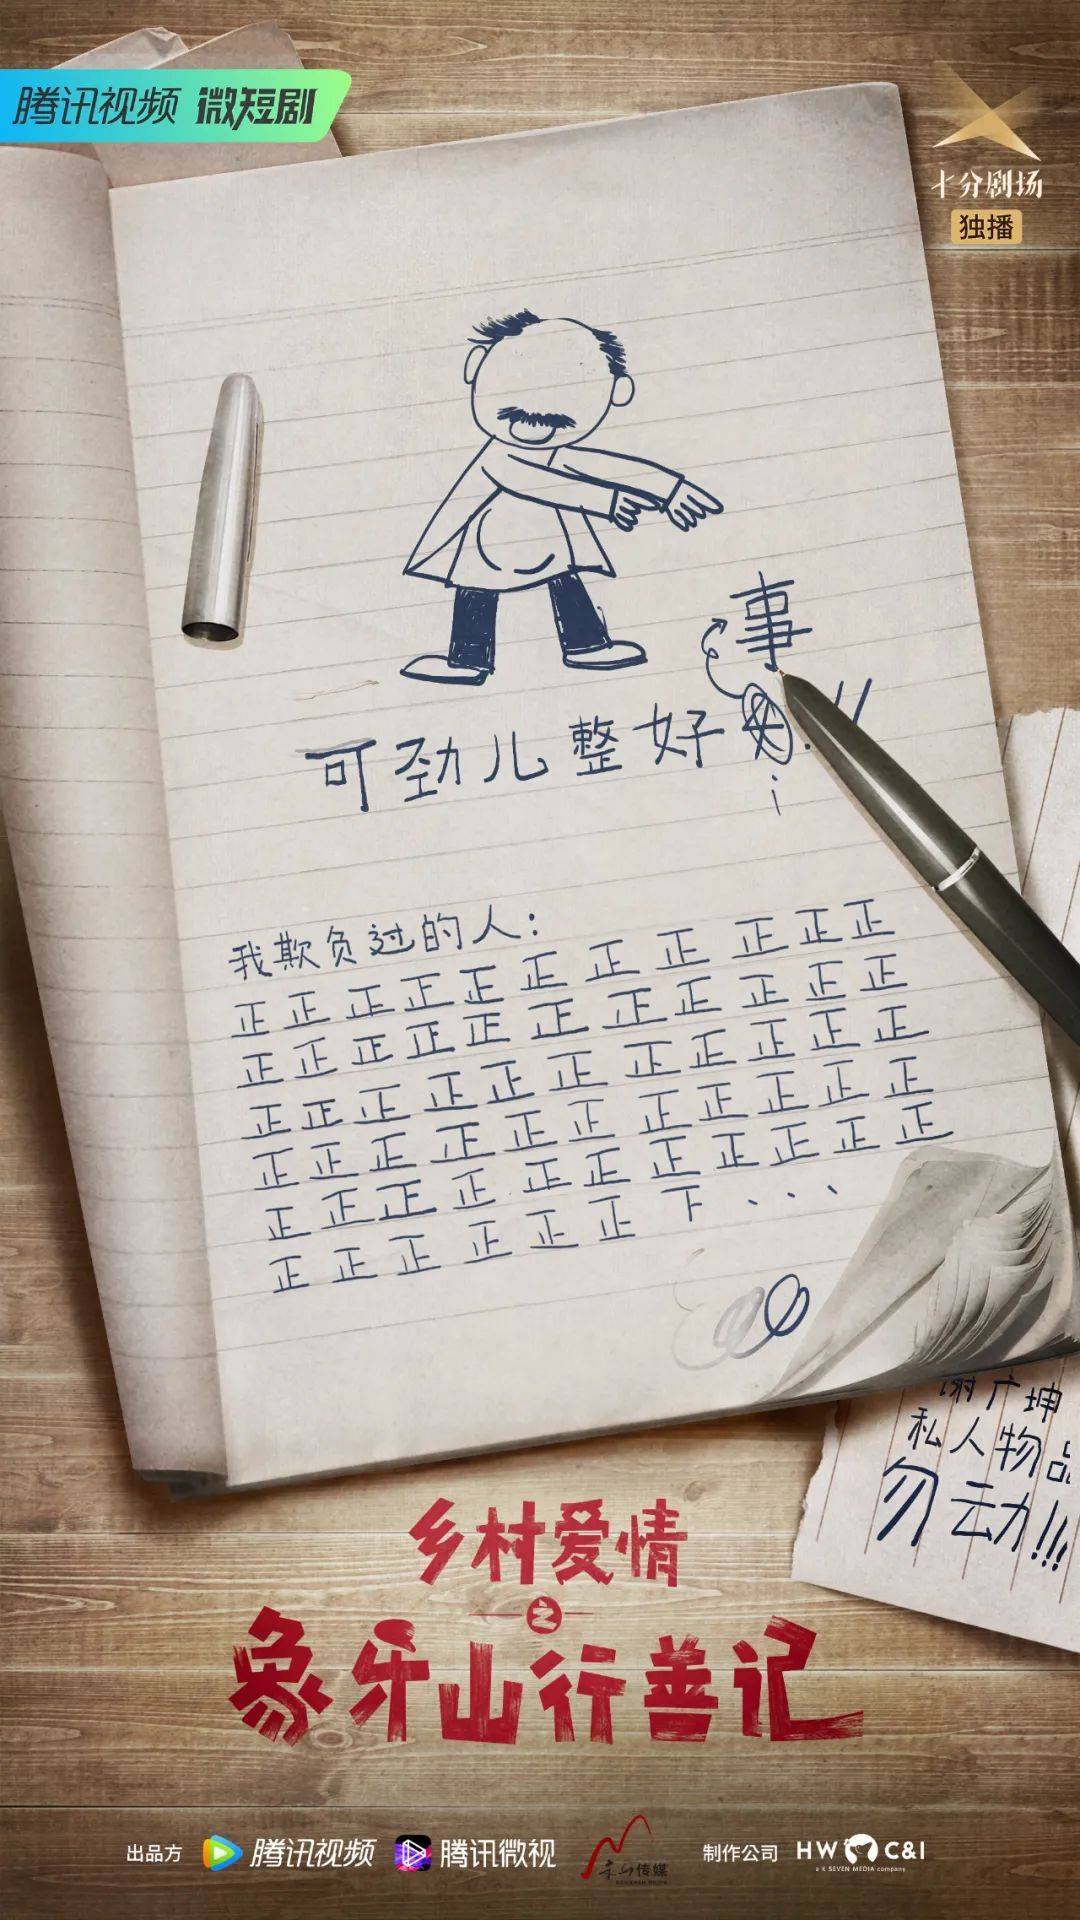 腾讯视频 微短剧
十分剧场
独播
事
可劲儿整好!!
我欺负过的人:
正正正正正正正正正正正
正正正正正正正正正正正
正正正正正正正正正正正
正正正正正正正正正正正
正正正正正正正正正正正
正正正正正正下...
谢广坤
私人物品
勿动!!!
乡村爱情
之
象牙山行善记
出品方 腾讯视频 腾讯微视 本山传媒 制作公司 HW C&I
a K SEVEN MEDIA company